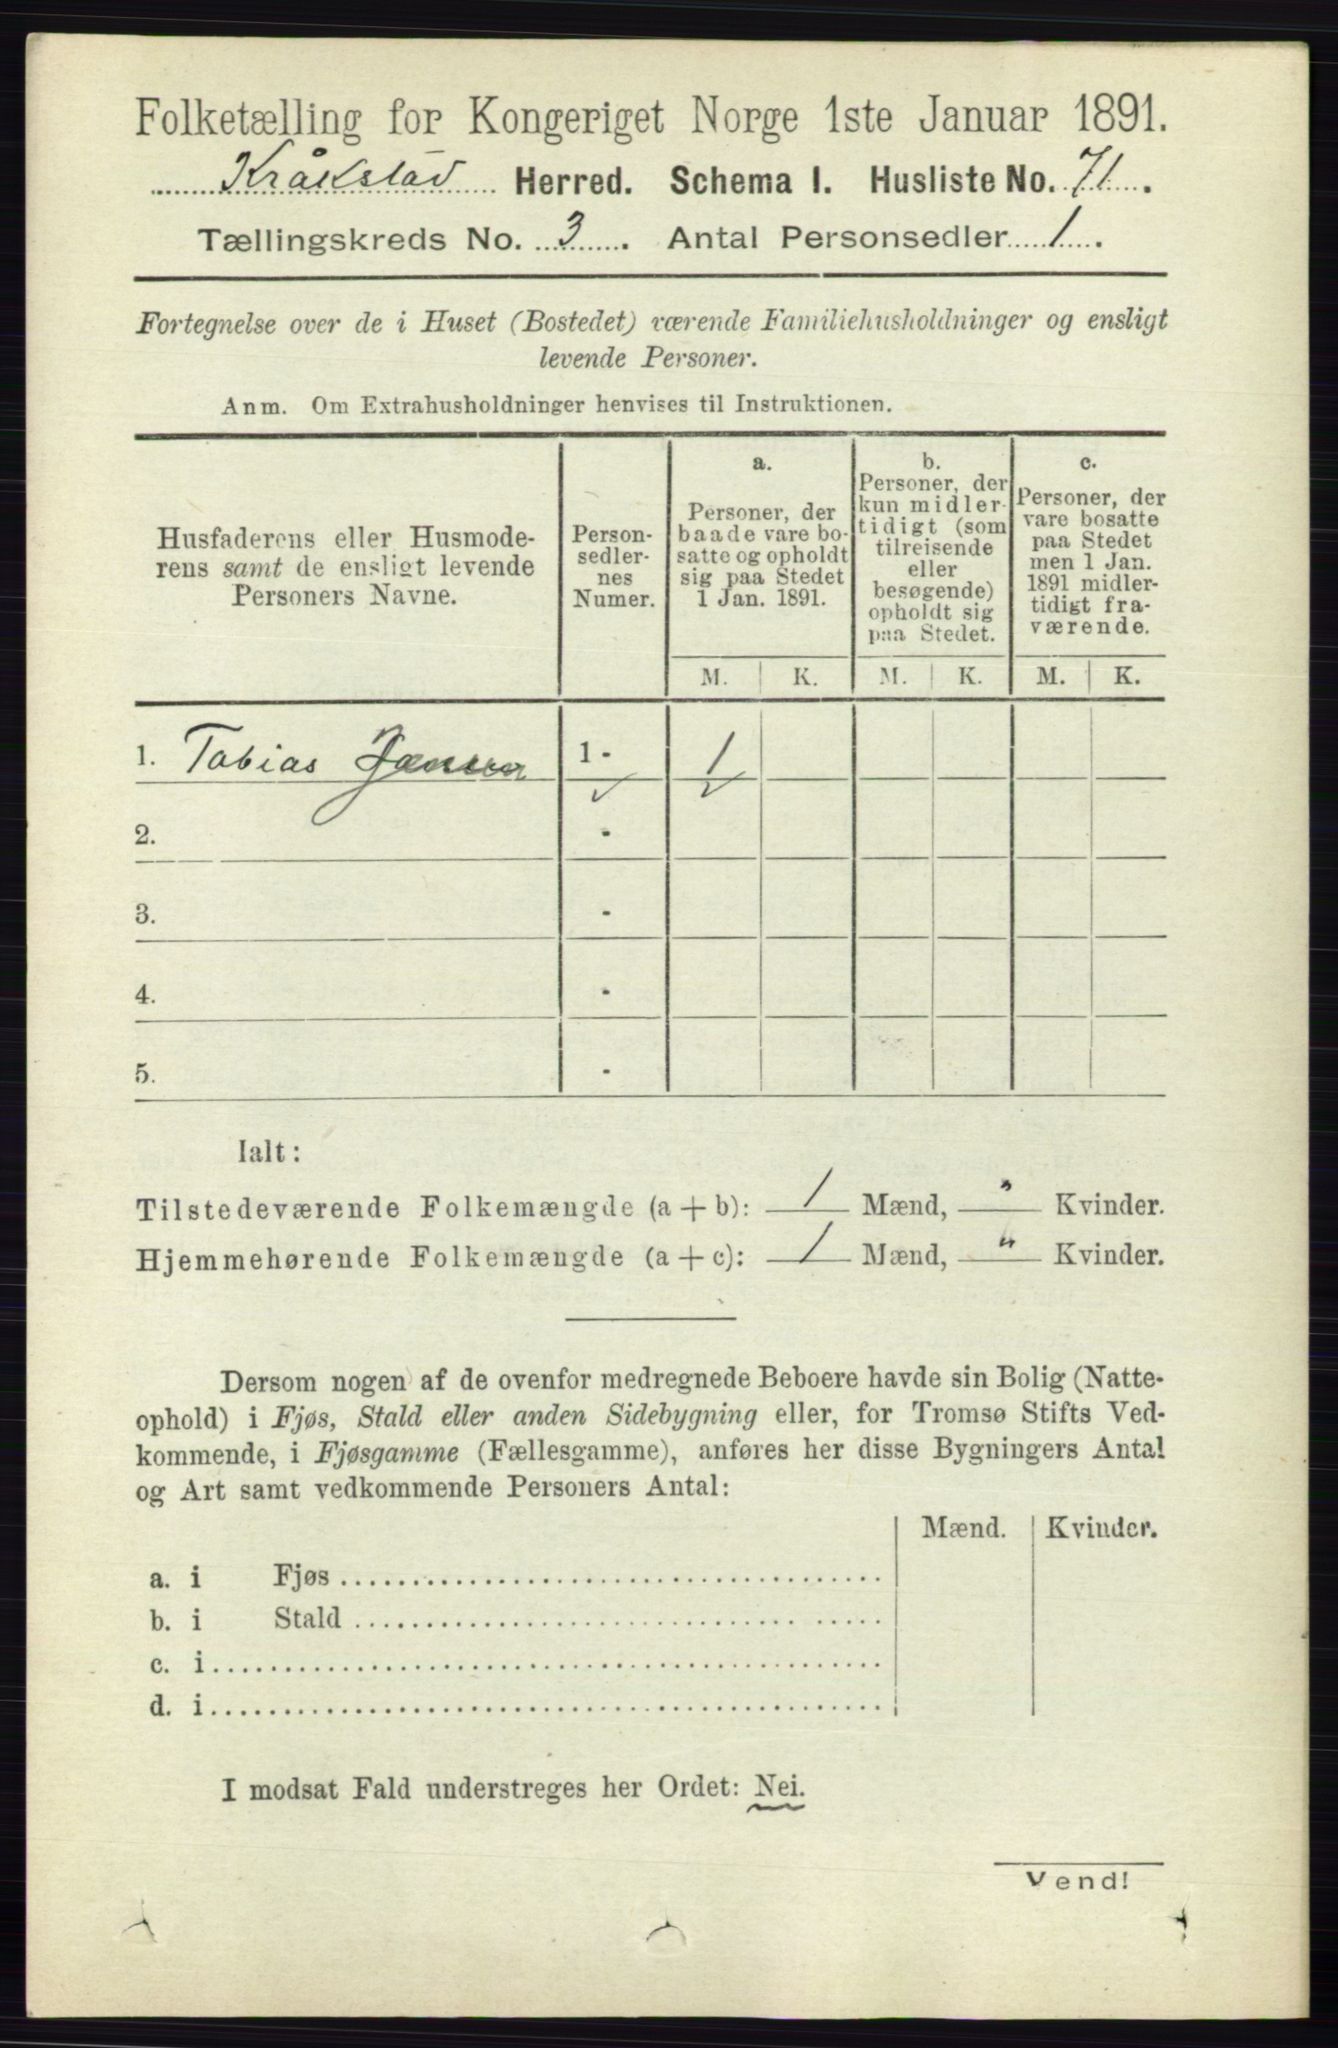 Folketælling for Kongeriget Norge 1ste Januar 1891.
Kråkstad Herred. Schema I. Husliste No. 71.
Tællingskreds No. 3. Antal Personsedler 1.
Fortegnelse over de i Huset (Bostedet) værende Familiehusholdninger og ensligt
levende Personer.
Anm. Om Extrahusholdninger henvises til Instruktionen.
Husfaderens eller Husmode-
rens samt de ensligt levende
Personers Navne.
Person-
sedler-
nes
Numer.
a.
Personer, der
baade vare bo-
satte og opholdt
sig paa Stedet
1 Jan. 1891.
b.
Personer, der
kun midler-
tidigt (som
tilreisende
eller
besøgende)
opholdt sig
paa Stedet.
c.
Personer, der
vare bosatte
paa Stedet
men 1 Jan.
1891 midler-
tidigt fra-
værende.
M. K. M. K. M. K.
1. Tobias 1 - 1
2. -
3. -
4. -
5. -
Ialt:
Tilstedeværende Folkemængde (a + b): 1 Mænd, " Kvinder.
Hjemmehørende Folkemængde (a + c): 1 Mænd, " Kvinder.
Dersom nogen af de ovenfor medregnede Beboere havde sin Bolig (Natte-
ophold) i Fjøs, Stald eller anden Sidebygning eller, for Tromsø Stifts Ved-
kommende, i Fjøsgamme (Fællesgamme), anføres her disse Bygningers Antal
og Art samt vedkommende Personers Antal:
Mænd. Kvinder.
a. i Fjøs
b. i Stald
c. i
d. i
I modsat Fald understreges her Ordet: Nei.
Vend!